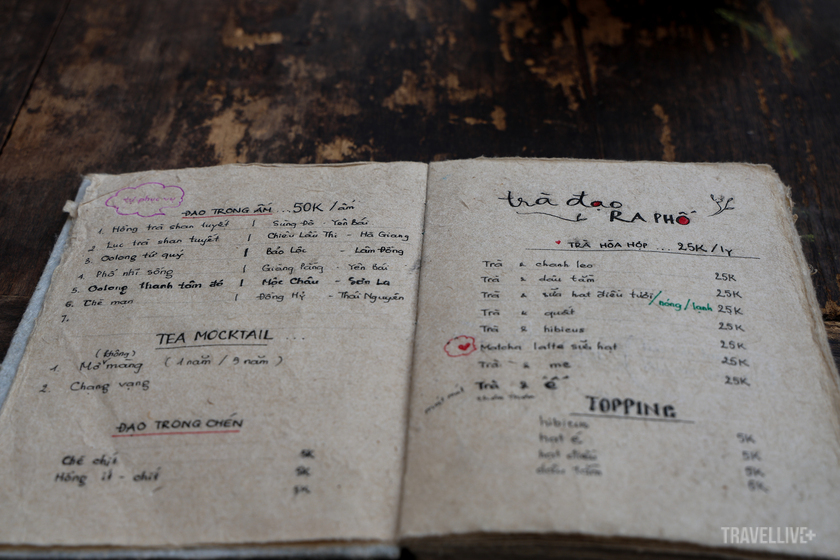 ĐẠO TRONG ẤM ... 50K / ấm
1. Hồng trà shan tuyết | Sung Đô - Yên Bái
2. Lục trà shan tuyết | Chiêu Lầu Thi - Hà Giang
3. Oolong tứ quý | Bảo Lộc - Lâm Đồng
4. Phổ nhĩ sống | Giàng Pằng - Yên Bái
5. Oolong thanh tâm đỏ | Mộc Châu - Sơn La
6. Chè man | Đồng Hỷ - Thái Nguyên
7.
TEA MOCKTAIL ...
(không)
1. Mơ màng ( 1 năm / 9 năm )
2. Chạng vạng
ĐẠO TRONG CHÉN
Chè chít 5K
Hồng ít - chít 5K
5K
trà đạo
RA PHỐ
TRÀ HÒA HỢP ... 25K / ly
Trà & chanh leo
Trà & dâu tằm 25K
Trà & sữa hạt điều tươi / nóng / lạnh 25K
Trà & quất 25K
Trà & hibicus
Matcha latte sữa hạt 25K
Trà & me 25K
Trà & 25K
TOPPING
hibicus
hạt é 5K
hạt điều 5K
dâu tằm 5K
5K
TRAVELLIVE+